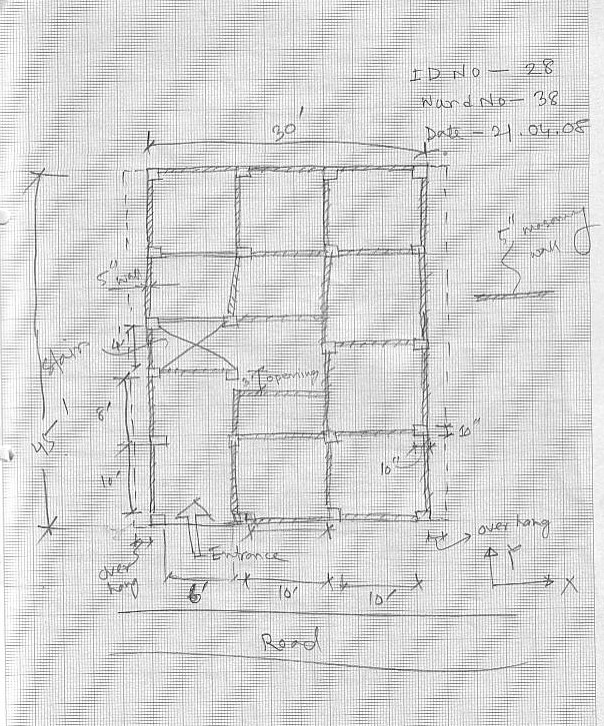 ID No - 28
Ward No - 38
Date - 21.04.08
30'
5" masonry
wall
5" wall
Stair
4'
3' opening
8'
45'
10"
10"
10'
over hang
Entrance
over
hang
Y
6'
10'
10'
X
Road